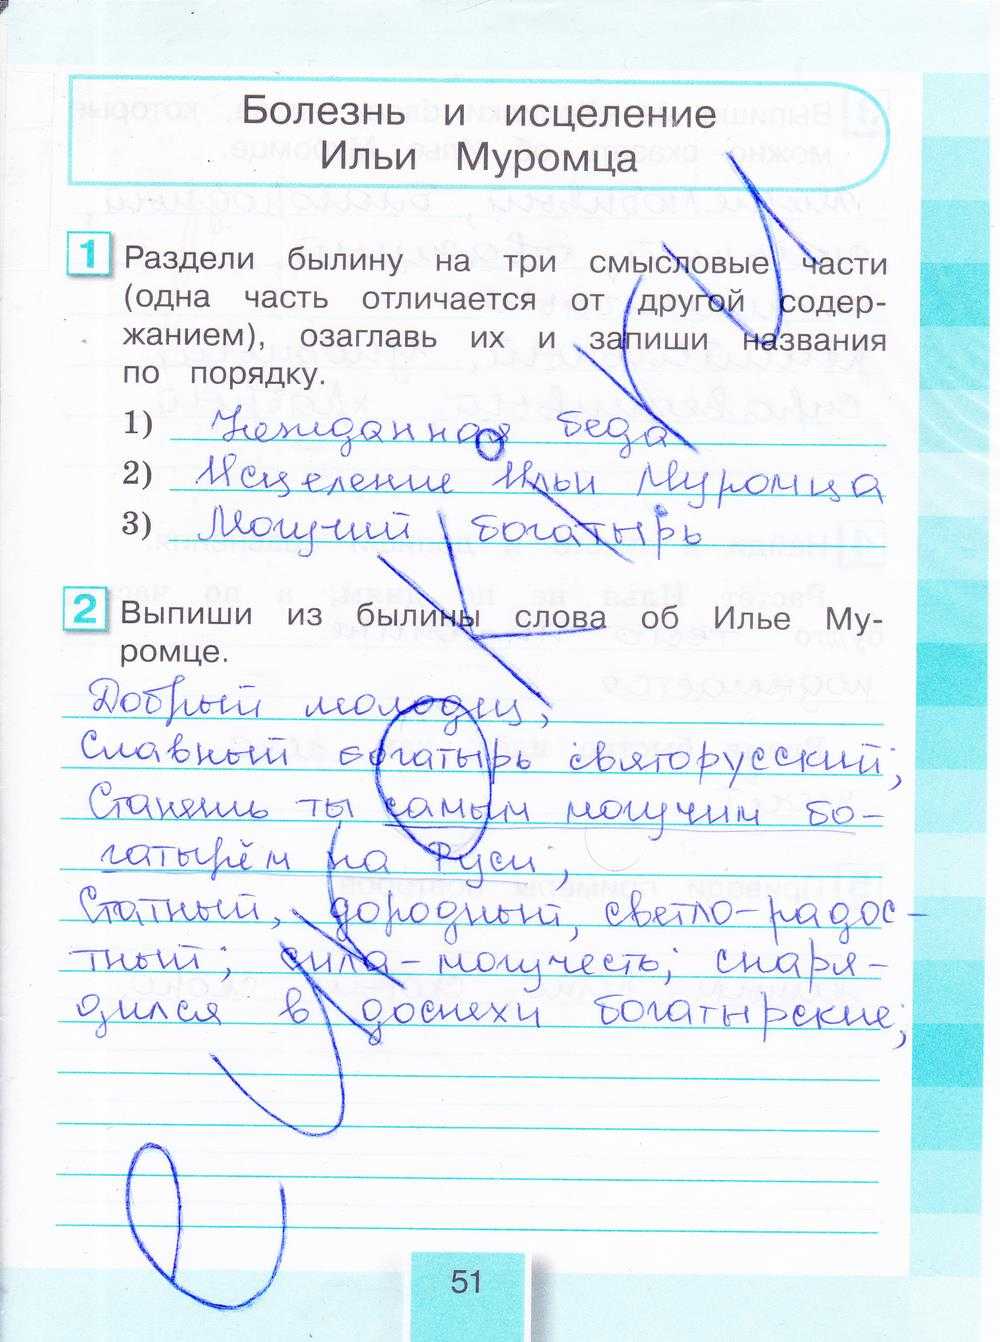 Болезнь и исцеление
Ильи Муромца
1 Раздели былину на три смысловые части
(одна часть отличается от другой содер-
жанием), озаглавь их и запиши названия
по порядку.
1) Нежданная беда
2) Исцеление Ильи Муромца
3) Могучий богатырь
2 Выпиши из былины слова об Илье Му-
ромце.
Добрый молодец,
Славный богатырь святорусский;
Станешь ты самым могучим бо-
гатырём на Руси;
Статный, дородный, светло-радос-
тный; сила-могучесть; снаря-
дился в доспехи богатырские;
51